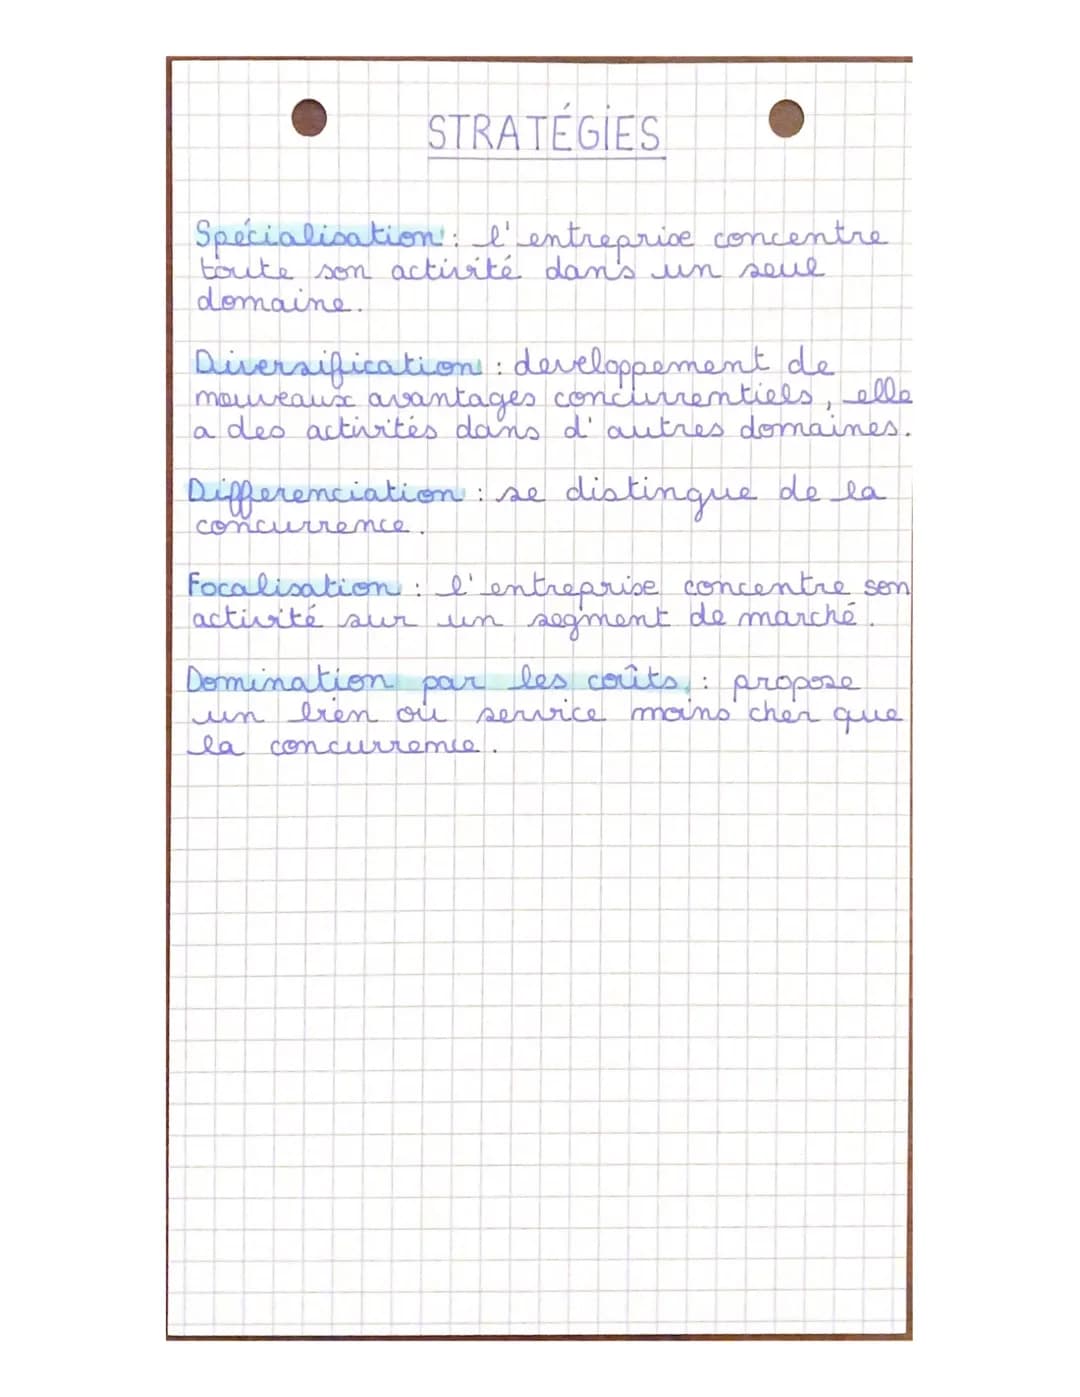 STRATÉGIES
Spécialisation : l'entreprise concentre
toute son activité dans un seul
domaine.
Diversification : developpement de
nouveaux avantages concurrentiels, elle
a des activités dans d'autres domaines.
Differenciation : se distingue de la
concurrence.
Focalisation : l'entreprise concentre son
activité sur un segment de marché.
Domination par les coûts : propose
un bien ou service moins cher que
la concurrence.